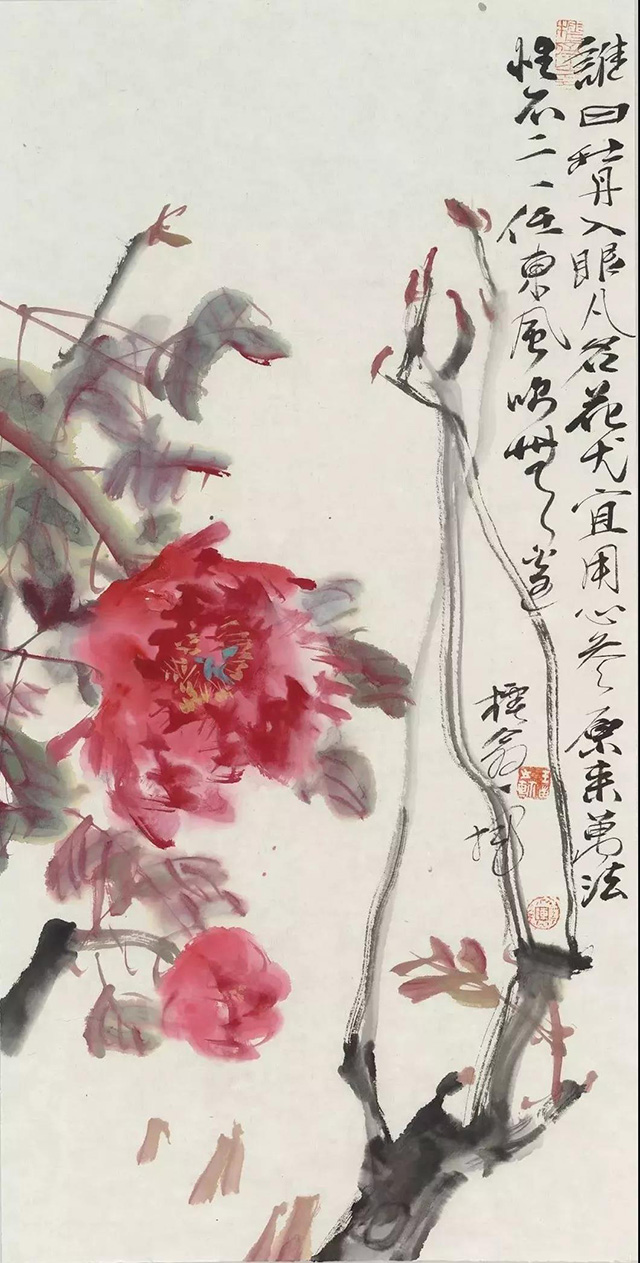 誰曰牡丹入眼凡名花尤宜用心参原来萬法
性不二一任東風吹無邊
翁一揮